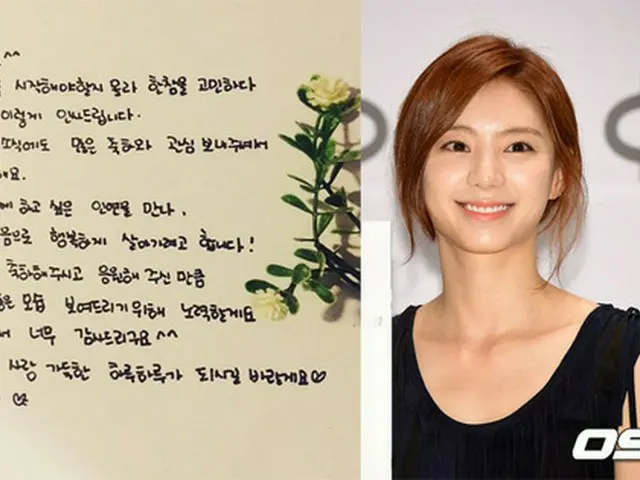 ^^
시작해야할지 몰라 한참을 고민하다
이렇게 인사드립니다.
소식에도 많은 축하와 관심 보내주셔서
해요.
하고 싶은 인연을 만나,
행복하게 살아가려고 합니다!
축하해주시고 응원해 주신 만큼
모습 보여드리기위해 노력할게요
너무 감사드리구요^^
사랑 가득한 하루하루가 되시길 바랄게요♡
♡
OS